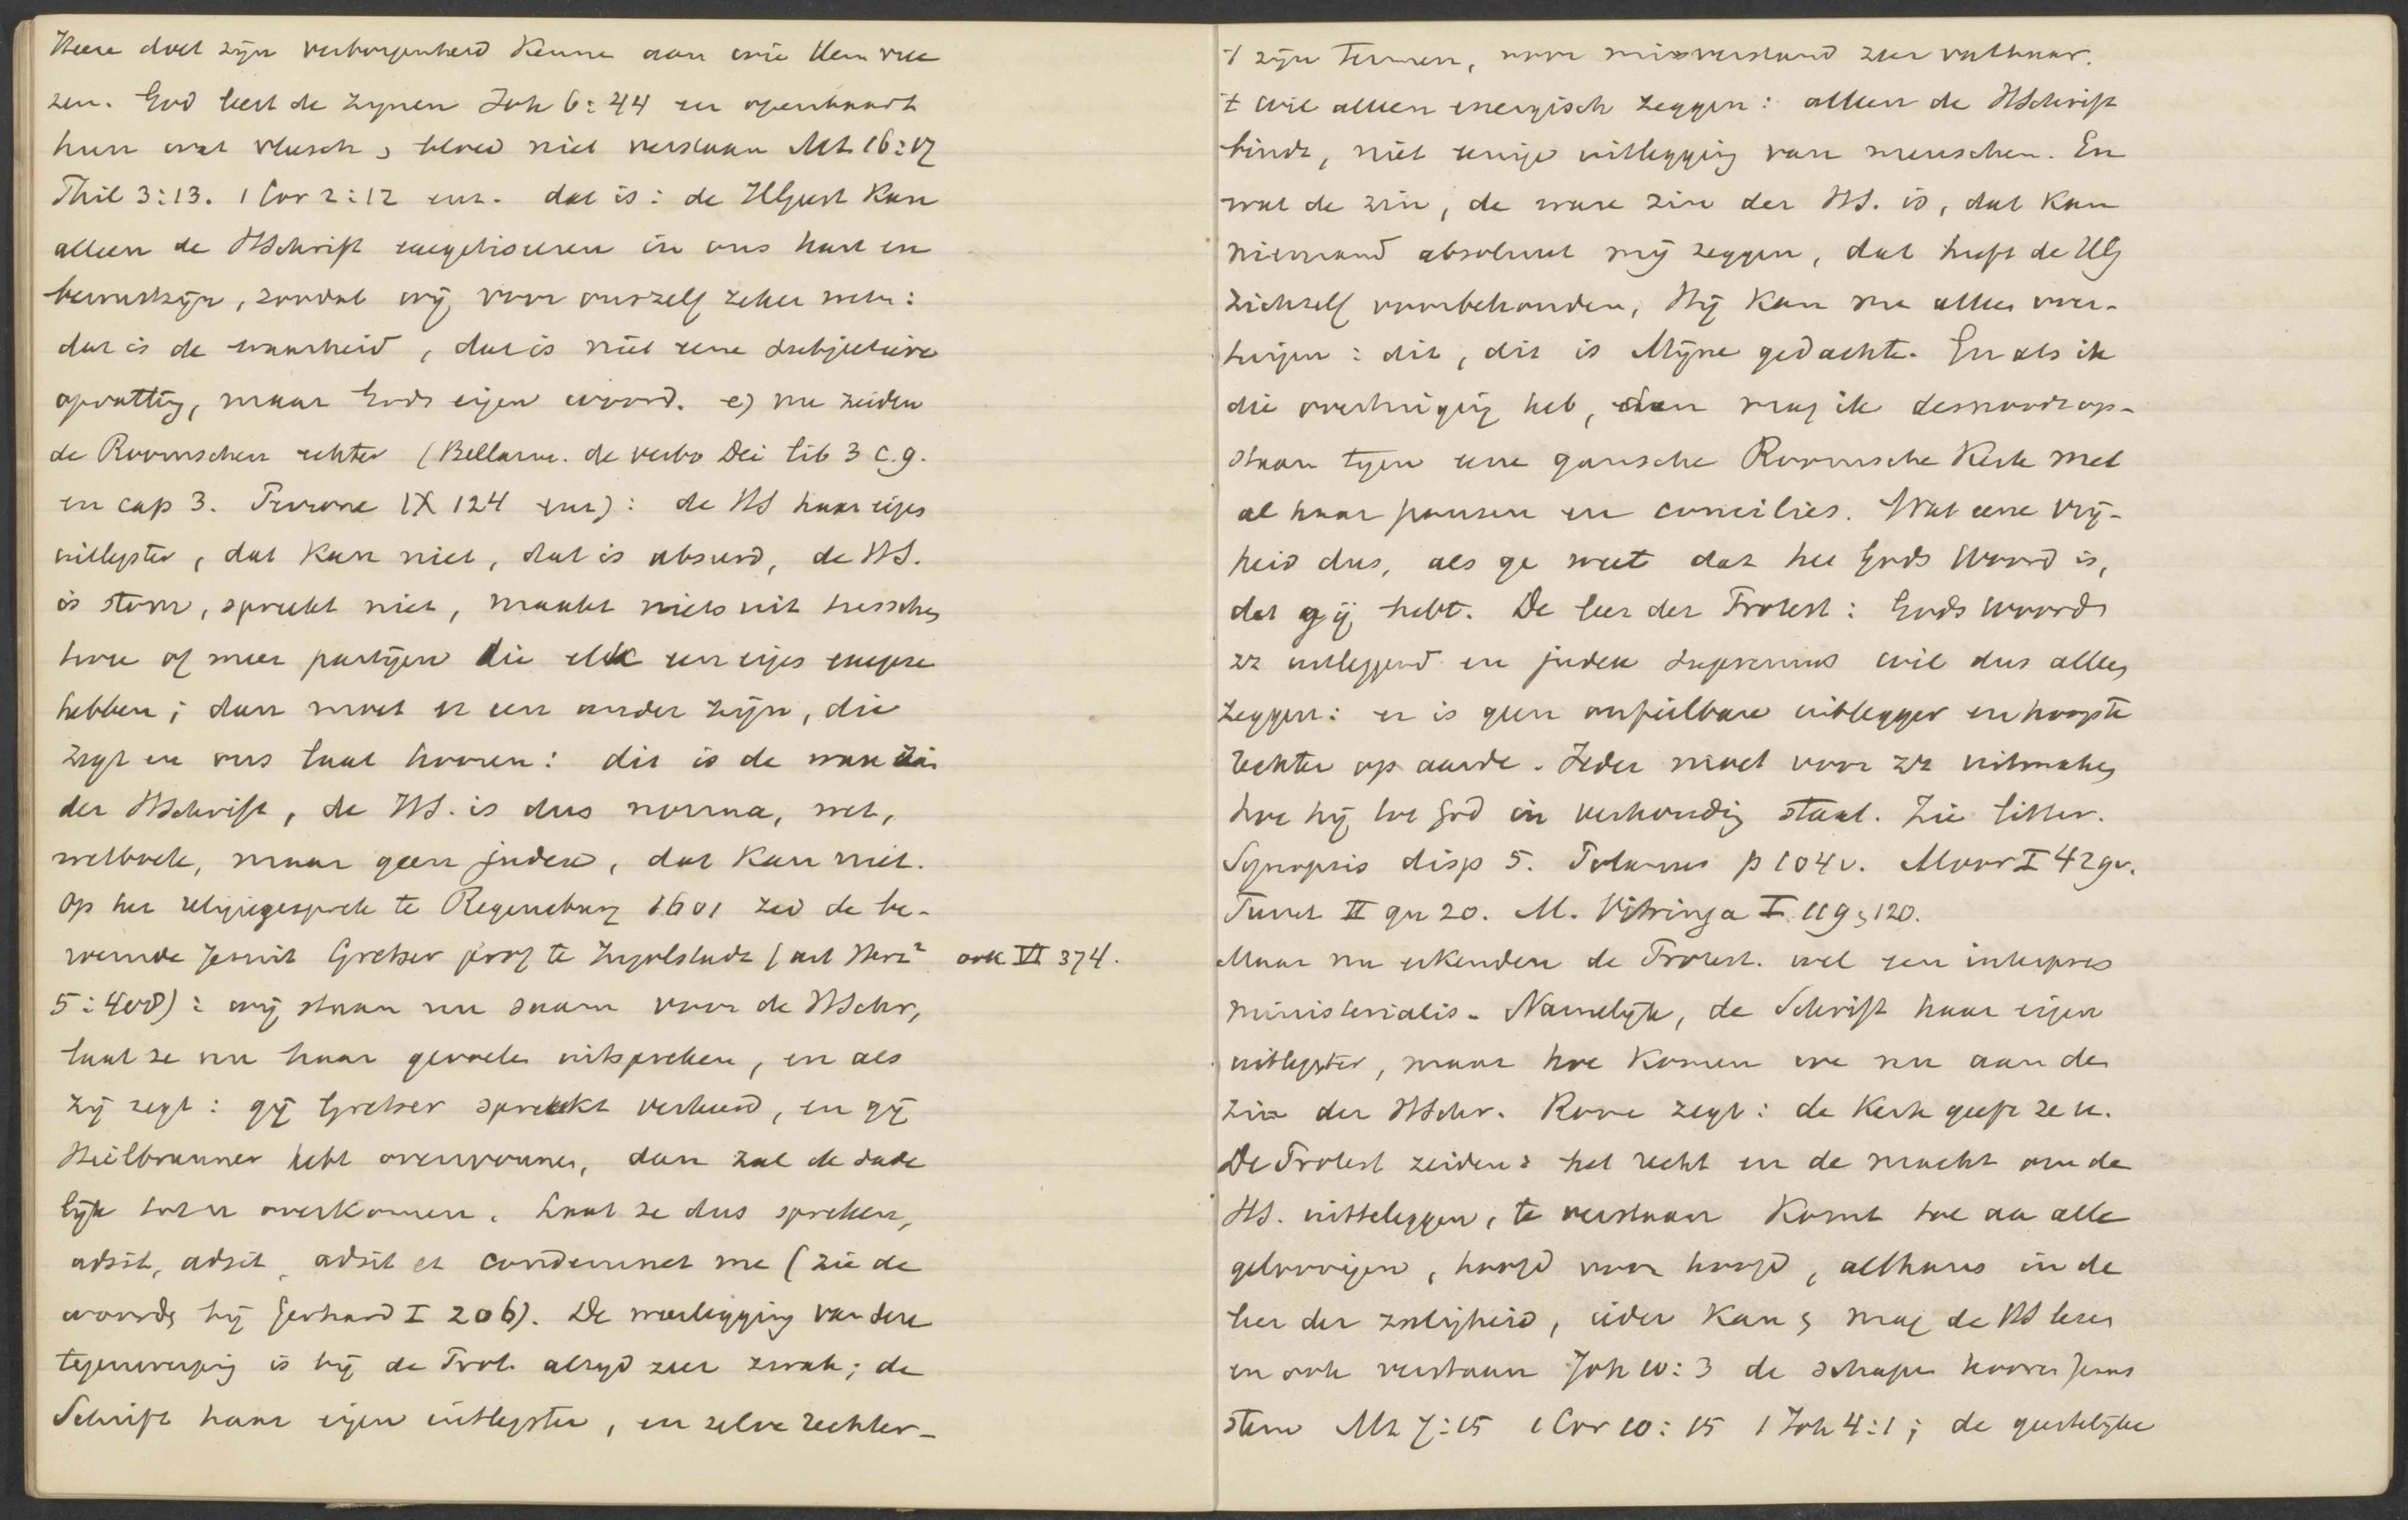 Heere doet zijn verborgenheid kenne aan wie Hem vree
zen. God leert de zijnen Joh 6:44 en openbaart
hun wat vleesch & bloed niet verstaan Mt 16:17
Phil 3:13. 1 Cor 2:12 enz. dat is: de HGeest kan
alleen de HSchrift exegetiseeren in ons hart en
bewustzijn, zoodat wij voor onszelf zeker weten:
dat is de waarheid, dat is niet eene subjectieve
opvatting, maar Gods eigen woord. e) nu zeiden
de Roomschen echter (Bellarm. de verbo Dei lib 3 c.9.
en cap 3. Perrone IX 124 enz): de HS haar eigen
uitlegster, dat kan niet, dat is absurd, de HS.
is stom, spreekt niet, maakt niets uit tusschen
twee of meer partijen die elk een eigen exegese
hebben; dan moet er een ander zijn, die
zegt en ons laat hooren: dit is de ware zin
der HSchrift, de HS. is dus norma, wet,
wetboek, maar geen judex, dat kan niet.
Op het religiegesprek te Regensburg 1601 zeid de be-
roemde Jesuit Gretser prof te Ingolstadt (art Herz² ook VI 374.
5:400): wij staan nu saam voor de HSchr,
laat ze nu haar gevoelen uitspreken, en als
zij zegt: gij Gretser spreekt verkeerd, en gij
Heilbrunner hebt overwonnen, dan zal ik dade
lijk tot u overkomen. Laat ze dus spreken,
adsit, adsit, adsit et condemnet me (zie de
woorden bij Gerhard I 206). De weerlegging van deze
tegenwerping is bij de Prot. altijd zeer zwak; de
Schrift haar eigen uitlegster, en zelve rechter-
't zijn termen, voor misverstand zeer vatbaar.
't wil alleen energisch zeggen: alleen de HSchrift
bindt, niet eenige uitlegging van menschen. En
wat de zin, de ware zin der HS. is, dat kan
niemand absoluut mij zeggen, dat heeft de HG
zichzelf voorbehouden, Hij kan me alleen over-
tuigen: dit, dit is Mijne gedachte. En als ik
die overtuiging heb, dan mag ik desnoods op-
staan tegen eene gansche Roomsche Kerk met
al haar pausen en concilies. Wat eene vrij-
heid dus, als ge weet dat het Gods Woord is,
dat gij hebt. De leer der Protest: Gods Woord
zz uitleggend en judex supremus wil dus alleen
zeggen: er is geen onfeilbare uitlegger en hoogste
Rechter op aarde. Ieder moet voor zz uitmaken
hoe hij tot God in verhouding staat. Zie litter.
Synopsis disp 5. Polanus p 104v. Moor I 429v.
Turret II qu 20. M. Vitringa I 119 & 120.
Maar nu erkenden de Protest. wel een interpres
ministerialis. Namelijk, de Schrift haar eigen
uitlegster, maar hoe komen we nu aan den
zin der HSchr. Rome zegt: de Kerk geeft ze u.
De Protest zeiden: het recht en de macht om de
HS. uitteleggen, te verstaan komt toe aan alle
geloovigen, hoofd voor hoofd, althans in de
leer der zaligheid, ieder kan & mag de HS lezen
en ook verstaan Joh 10:3 de schapen hooren Jezus
stem Mt 7:15 1 Cor 10:15 1 Joh 4:1; de geestelijke